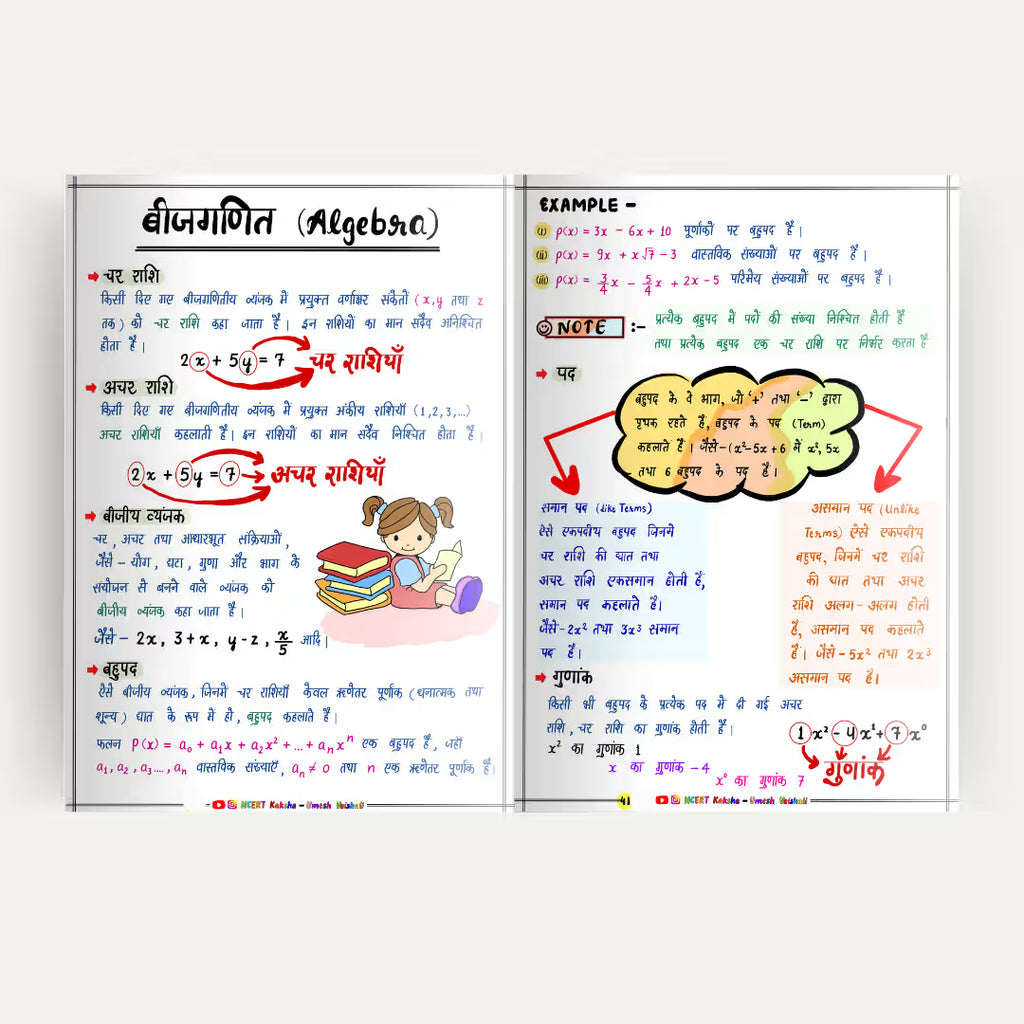 बीजगणित (Algebra)
चर राशि
किसी दिए गए बीजगणितीय व्यंजक में प्रयुक्त वर्णाक्षर संकेतों (x, y तथा z
तक) को चर राशि कहा जाता है। इन राशियों का मान सदैव अनिश्चित
होता है।
2x + 5y = 7 चर राशियाँ
अचर राशि
किसी दिए गए बीजगणितीय व्यंजक में प्रयुक्त अंकीय राशियाँ (1,2,3,...)
अचर राशियाँ कहलाती हैं। इन राशियों का मान सदैव निश्चित होता है।
2x + 5y = 7 अचर राशियाँ
बीजीय व्यंजक
चर, अचर तथा आधारभूत संक्रियाओं,
जैसे – योग, घटा, गुणा और भाग के
संयोजन से बनने वाले व्यंजक को
बीजीय व्यंजक कहा जाता है।
जैसे – 2x, 3+x, y-z, x/5 आदि।
बहुपद
ऐसे बीजीय व्यंजक, जिनमें चर राशियाँ केवल ऋणेतर पूर्णांक (धनात्मक तथा
शून्य) घात के रूप में हो, बहुपद कहलाते हैं।
फलन P(x) = a₀ + a₁x + a₂x² + ... + aₙxⁿ एक बहुपद है, जहाँ
a₁, a₂, a₃...., aₙ वास्तविक संख्याएँ, aₙ ≠ 0 तथा n एक ऋणेतर पूर्णांक है।
NCERT Kaksha – Umesh Vaishali
EXAMPLE –
(i) P(x) = 3x – 6x + 10 पूर्णांकों पर बहुपद है।
(ii) P(x) = 9x + x√7 – 3 वास्तविक संख्याओं पर बहुपद है।
(iii) P(x) = 3/4 x – 5/4 x + 2x – 5 परिमेय संख्याओं पर बहुपद है।
NOTE :- प्रत्येक बहुपद में पदों की संख्या निश्चित होती है
तथा प्रत्येक बहुपद एक चर राशि पर निर्भर करता है
पद
बहुपद के वे भाग, जो '+' तथा '–' द्वारा
पृथक रहते हैं, बहुपद के पद (Term)
कहलाते हैं। जैसे – (x²-5x+6 में x², 5x
तथा 6 बहुपद के पद हैं।
समान पद (Like Terms)
ऐसे एकपदीय बहुपद जिनमें
चर राशि की घात तथा
अचर राशि एकसमान होती हैं,
समान पद कहलाते हैं।
जैसे – 2x² तथा 3x³ समान
पद हैं।
असमान पद (Unlike
Terms) ऐसे एकपदीय
बहुपद, जिनमें चर राशि
की घात तथा अचर
राशि अलग-अलग होती
हैं, असमान पद कहलाते
हैं। जैसे – 5x² तथा 2x³
असमान पद हैं।
गुणांक
किसी भी बहुपद के प्रत्येक पद में दी गई अचर
राशि, चर राशि का गुणांक होती हैं।
1x² - 4x¹ + 7x⁰
गुणांक
x² का गुणांक 1
x का गुणांक -4
x⁰ का गुणांक 7
41 NCERT Kaksha – Umesh Vaishali